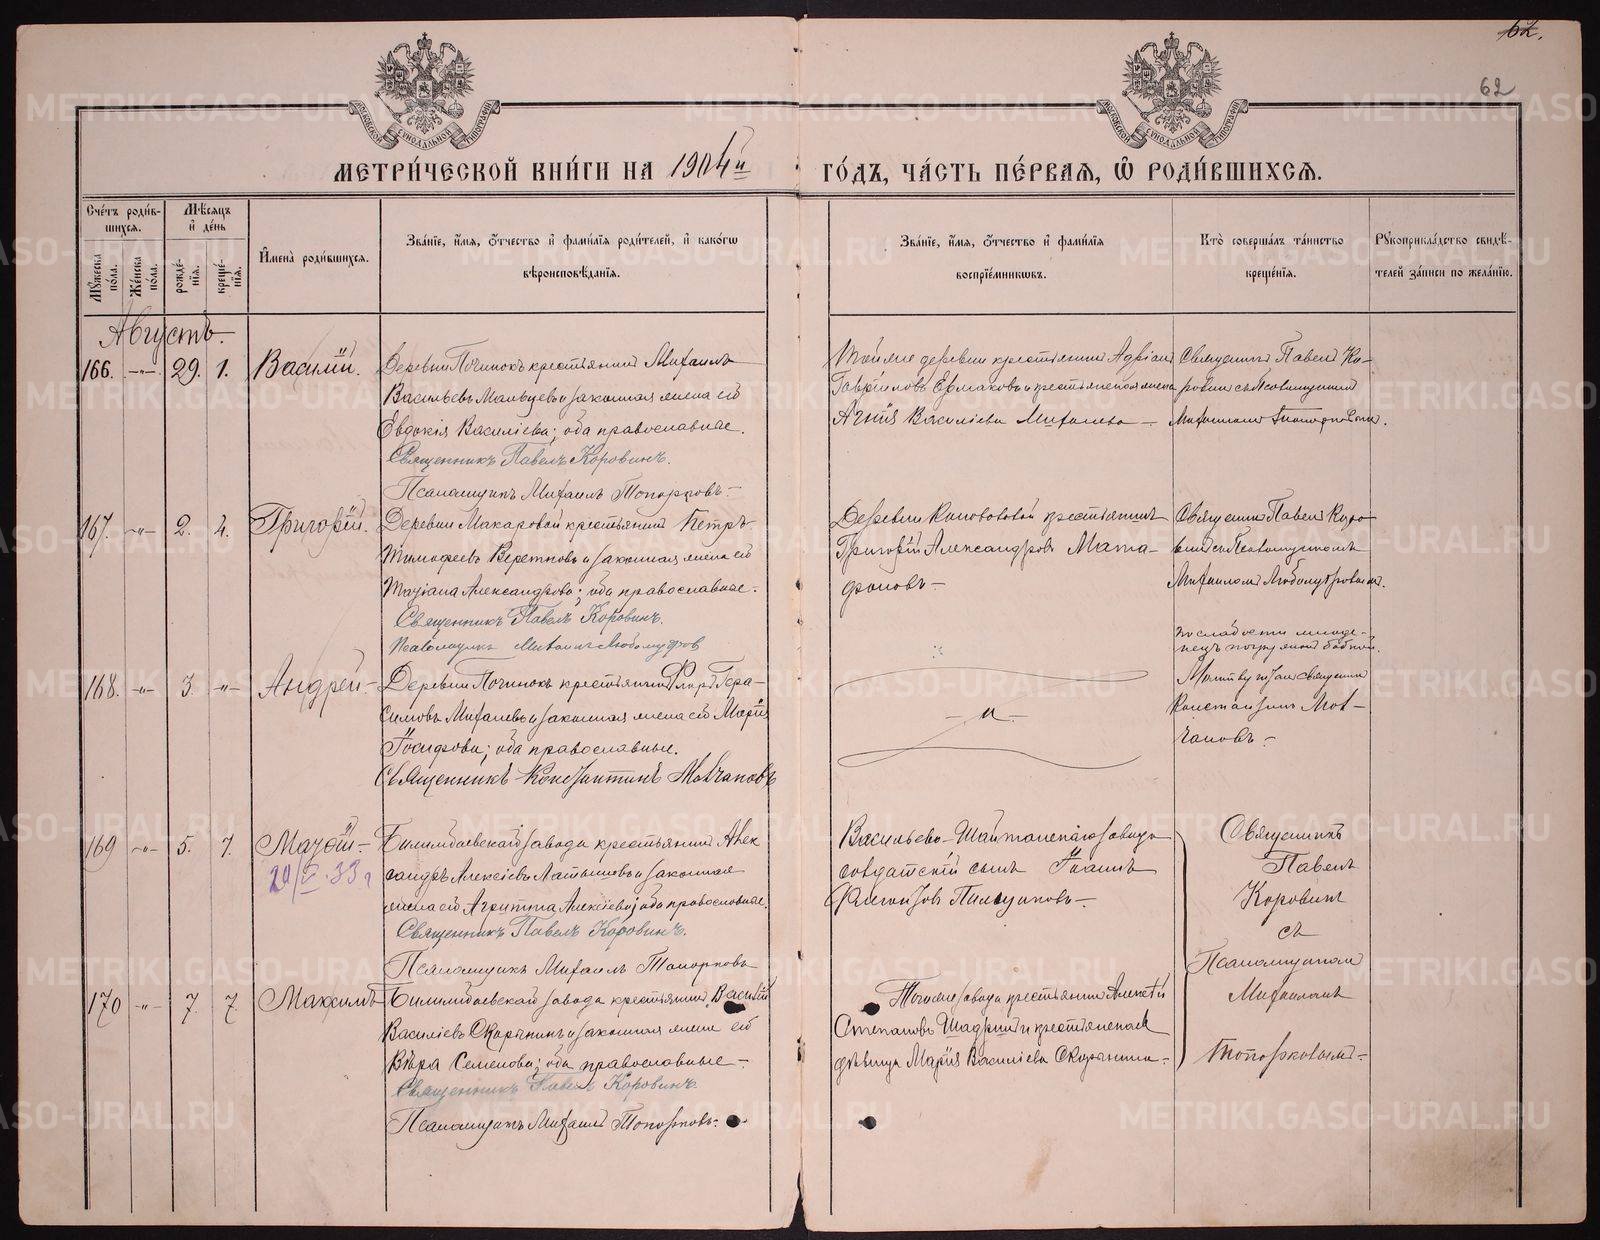 62.
62
МЕТРИ́ЧЕСКОЙ КНИ́ГИ НА 1904й ГО́ДЪ, ЧА́СТЬ ПЕ́РВАЯ, Ѽ РОДИ́ВШИХСЯ.
Счетъ родившихся.
Мужеска пола.
Женска пола.
Мѣсяцъ и день
рожденія.
крещенія.
Имена родившихся.
Званіе, имя, отчество и фамилія родителей, и какогѡ вѣроисповѣданія.
Званіе, имя, отчество и фамилія воспріемниковъ.
Кто совершалъ таинство крещенія.
Рукоприкладство свидѣтелей записи по желанію.
Августъ.
166. -„- 29. 1. Василій.
Деревни Починокъ крестьянинъ Михаилъ
Васильевъ Мальцевъ и законная жена его
Евдокія Василіева; оба православные.
Священникъ Павелъ Коровинъ.
Псаломщикъ Михаилъ Топорковъ.
Тойже деревни крестьянинъ Адріанъ
Гавріиловъ Ермаковъ и крестьянская жена
Агнія Василіева
Священникъ Павелъ Ко-
ровинъ съ Псаломщикомъ
Михаиломъ Топорковымъ.
167. -„- 2. 4. Григорій.
Деревни Макаровой крестьянинъ Петръ
Тимофеевъ и законная жена его
Татіана Александрова; оба православные.
Священникъ Павелъ Коровинъ.
Псаломщикъ Михаилъ Любомудров
Деревни крестьянинъ
Григорій Александровъ Мата-
фоновъ
Священникъ Павелъ Коро-
винъ съ Псаломщикомъ
Михаиломъ Любомудровымъ.
168. -„- 3. -„- Андрей
Деревни Починокъ крестьянинъ Флоръ Гера-
симовъ и законная жена его Марія
Іосифова; оба православные.
Священникъ Константинъ Молчановъ
-„-
по слабости младе-
нецъ погруженъ бабкой.
Молитву читалъ священникъ
Константинъ Мол-
чановъ.
169 -„- 5. 7. Матѳій
Билимбаевскаго завода крестьянинъ Алек
сандръ Алексіевъ Латышовъ и законная
жена его Агриппа Алексіева; оба православные.
Священникъ Павелъ Коровинъ.
Псаломщикъ Михаилъ Топорковъ
Васильево-Шайтанскаго завода
солдатскій сынъ Іоаннъ
Пильщиковъ
Священникъ
Павелъ
Коровинъ
съ
Псаломщикомъ
Михаиломъ
Топорковымъ
170 -„- 7. 7. Максимъ
Билимбаевскаго завода крестьянинъ Василій
Василіевъ Скорынинъ и законная жена его
Вѣра Семенова; оба православные
Священникъ Павелъ Коровинъ.
Псаломщикъ Михаилъ Топорковъ.
Тогоже завода крестьянинъ Алексѣй
Степановъ Шадринъ и крестьянская
дѣвица Марія Василіева Скорынина
METRIKI.GASO-URAL.RU